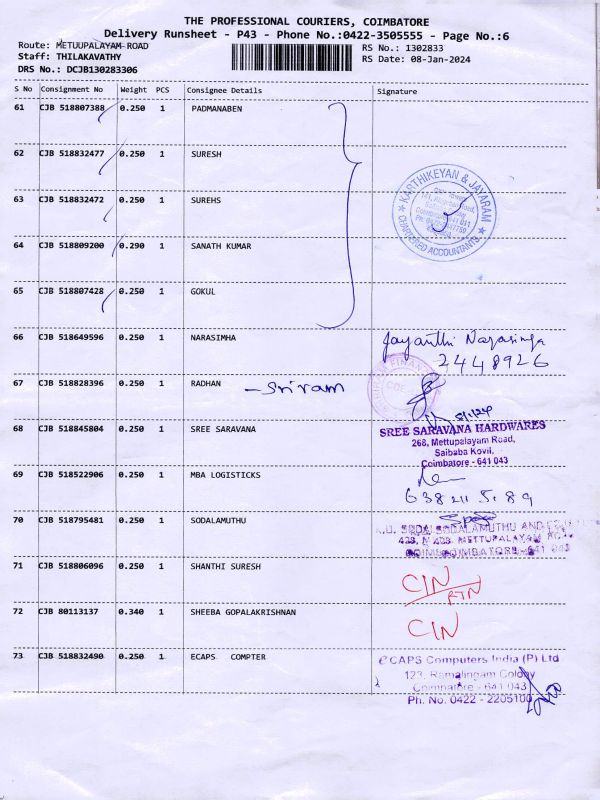 THE PROFESSIONAL COURIERS, COIMBATORE
Delivery Runsheet - P43 - Phone No.:0422-3505555 - Page No.:6
Route: METUUPALAYAM ROAD RS No.: 1302833
Staff: THILAKAVATHY RS Date: 08-Jan-2024
DRS No.: DCJB130283306
S No Consignment No Weight PCS Consignee Details Signature
61 CJB 518807388 0.250 1 PADMANABEN
62 CJB 518832477 0.250 1 SURESH
63 CJB 518832472 0.250 1 SUREHS
KARTHIKEYAN & JAYARAM
CHARTERED ACCOUNTANTS
64 CJB 518809200 0.290 1 SANATH KUMAR
65 CJB 518807428 0.250 1 GOKUL
66 CJB 518649596 0.250 1 NARASIMHA Jayanthi Narasimha
2448926
67 CJB 518828396 0.250 1 RADHAN - Sriram
68 CJB 518845804 0.250 1 SREE SARAVANA SREE SARAVANA HARDWARES
268, Mettupalayam Road,
Saibaba Kovil,
Coimbatore - 641 043
69 CJB 518522906 0.250 1 MBA LOGISTICKS
70 CJB 518795481 0.250 1 SODALAMUTHU SODALAMUTHU AND
METTUPALAYAM
71 CJB 518806096 0.250 1 SHANTHI SURESH CIN
RTN
72 CJB 80113137 0.340 1 SHEEBA GOPALAKRISHNAN CIN
73 CJB 518832490 0.250 1 ECAPS COMPTER eCAPS Computers India (P) Ltd
123, Ramalingam Colony
Coimbatore - 641 043
Ph. No. 0422 - 2205100